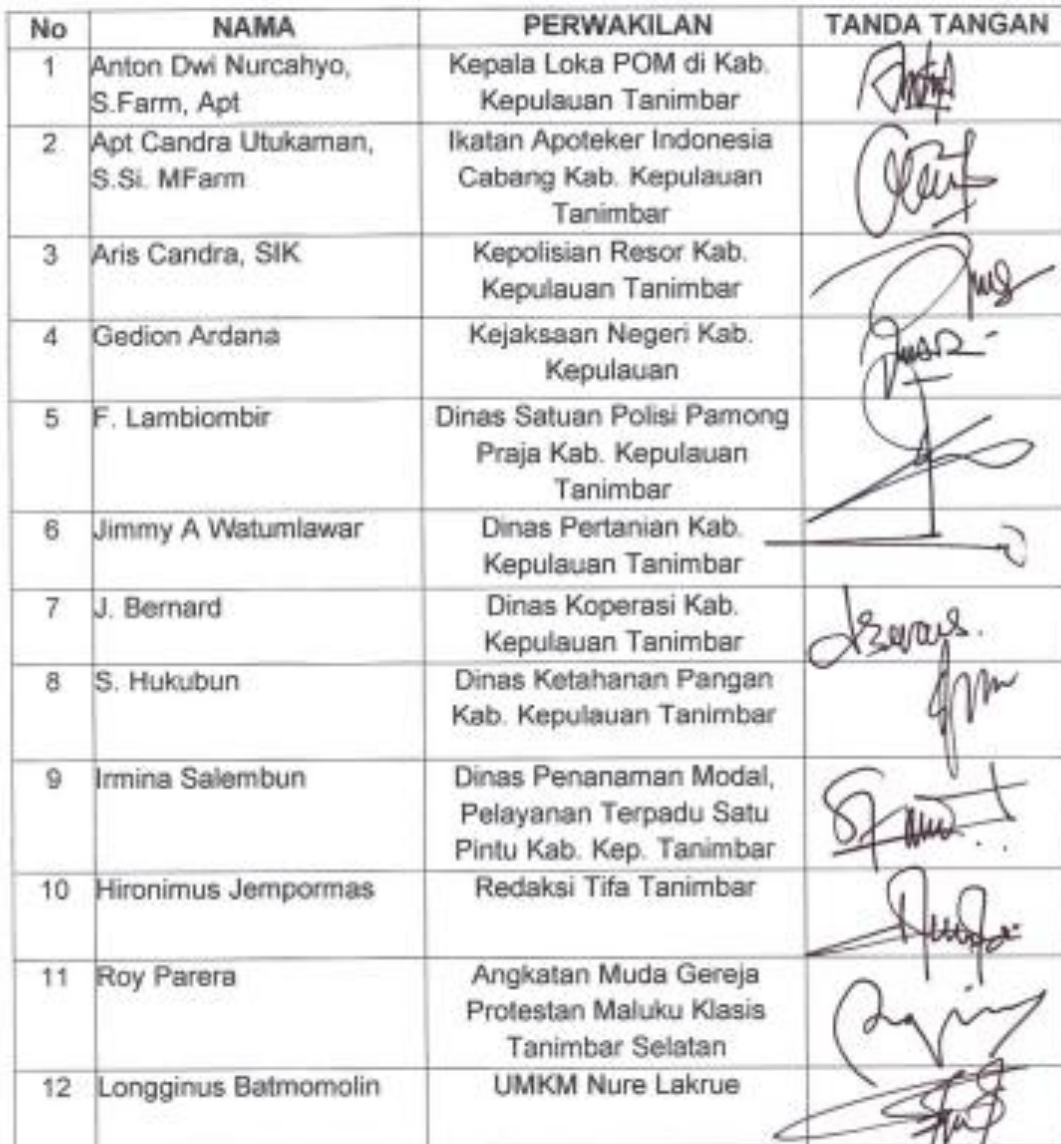 No NAMA PERWAKILAN TANDA TANGAN
1 Anton Dwi Nurcahyo, Kepala Loka POM di Kab.
S.Farm, Apt Kepulauan Tanimbar
2 Apt Candra Utukaman, Ikatan Apoteker Indonesia
S.Si. MFarm Cabang Kab. Kepulauan
Tanimbar
3 Aris Candra, SIK Kepolisian Resor Kab.
Kepulauan Tanimbar
4 Gedion Ardana Kejaksaan Negeri Kab.
Kepulauan
5 F. Lambiombir Dinas Satuan Polisi Pamong
Praja Kab. Kepulauan
Tanimbar
6 Jimmy A Watumlawar Dinas Pertanian Kab.
Kepulauan Tanimbar
7 J. Bernard Dinas Koperasi Kab.
Kepulauan Tanimbar
8 S. Hukubun Dinas Ketahanan Pangan
Kab. Kepulauan Tanimbar
9 Irmina Salembun Dinas Penanaman Modal,
Pelayanan Terpadu Satu
Pintu Kab. Kep. Tanimbar
10 Hironimus Jempormas Redaksi Tifa Tanimbar
11 Roy Parera Angkatan Muda Gereja
Protestan Maluku Klasis
Tanimbar Selatan
12 Longginus Batmomolin UMKM Nure Lakrue